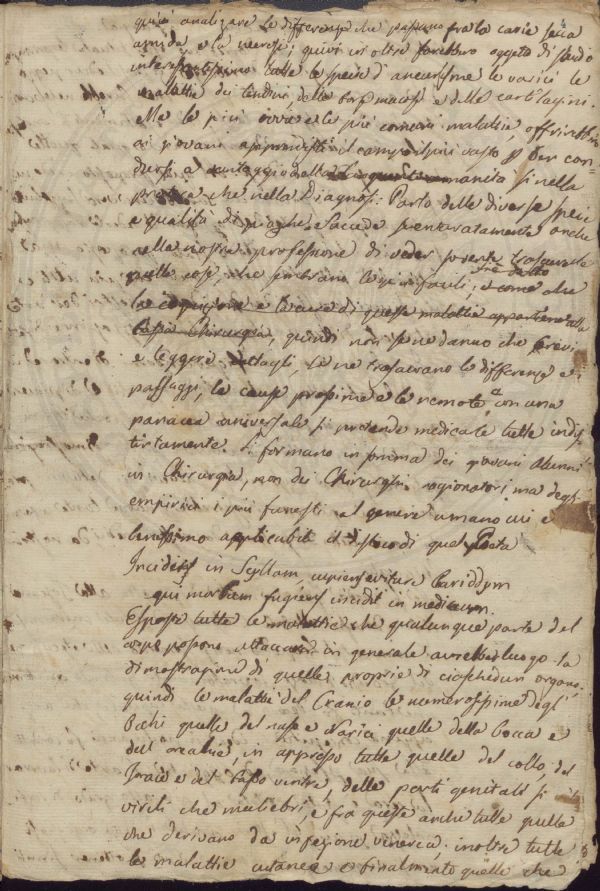 quivi analizare le differenze che passano fra la carie secca
umida e la venerea; quivi in oltre farebbero oggetto di studio
interessantissimo tutte le specie d'aneurisme le varici le
malattie dei tendini, delle borse mucose e delle cartilagini.
Ma le più ovvie e le più comuni malattie, offrirebbero
ai giovani apprendisti il campo il più vasto per con-
dursi a vantaggio della umanità sì nella
pratica che nella Diagnosi: Parlo delle diverse specie
e qualità di piaghe. Accade sventuratamente anche
nella nostra professione di veder sovente trascurate
quelle cose, che sembrano le più facili, e come che
la cognizione e la cura di queste malattie appartiene alla
bassa Chirurgia, quindi non se ne danno che brevi
e leggeri dettagli, se ne trascurano le differenze e i
passaggi, le cause prossime e le remote e con una
panacea universale si pretende medicarle tutte indis-
tintamente. Si formano in somma dei giovani Alunni
in Chirurgia, non dei Chirurghi ragionatori ma degli
empirici i più funesti al genere umano cui e
benissimo applicabile il distico di quel Poeta
Incidis in Scyllam, cupiens vitare Cariddym
qui morbum fugiens incidit in medicum.
Esposte tutte le malattie che qualunque parte del
corpo possono attaccare in generale avrebbe luogo la
dimostrazione di quelle proprie di ciascheduno organo,
quindi le malattie del Cranio le numerosissime degl'
Occhi quelle del naso e Narici quelle della bocca e
dell'orecchie, in appresso tutte quelle del collo, del
Torace e del basso ventre, delle parti genitali sì
virili che muliebri, e frà queste anche tutte quelle
che derivano da infezione venerea; inoltre tutte
le malattie cutanee e finalmente quelle che